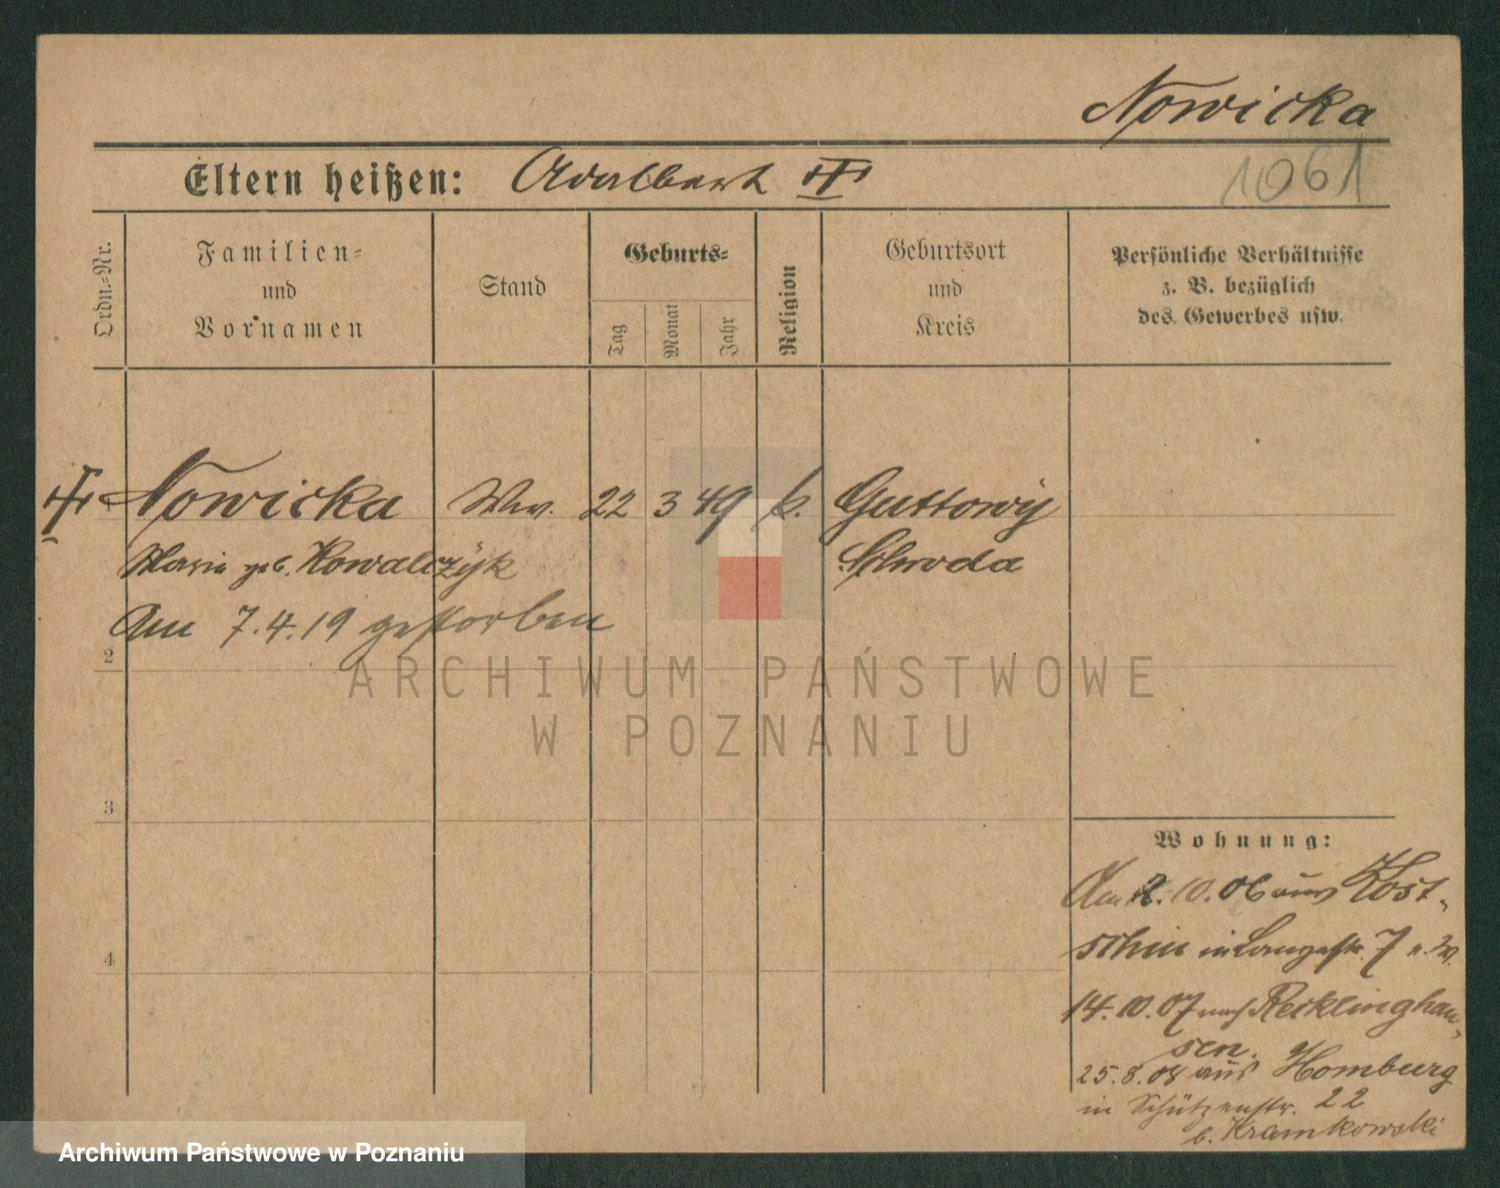 Nowicka
Eltern heißen: Adalbert
1061
Ordn.-Nr.
Familien- und Vornamen
Stand
Geburts-
Tag
Monat
Jahr
Religion
Geburtsort und Kreis
Persönliche Verhältnisse
z. B. bezüglich
des Gewerbes usw.
Nowicka Ww. 22 3 49 k. Guttowy
Maria geb. Kowalczyk Schroda
Am 7.4.19 gestorben
2
3
4
Wohnung:
Am 2.10.06 aus Kost-
schin in Langestr. 7
14.10.07 nach Recklinghau-
sen.
25.8.08 aus Homburg
in Schützenstr. 22
b. Kramkowski
ARCHIWUM PAŃSTWOWE
W POZNANIU
Archiwum Państwowe w Poznaniu